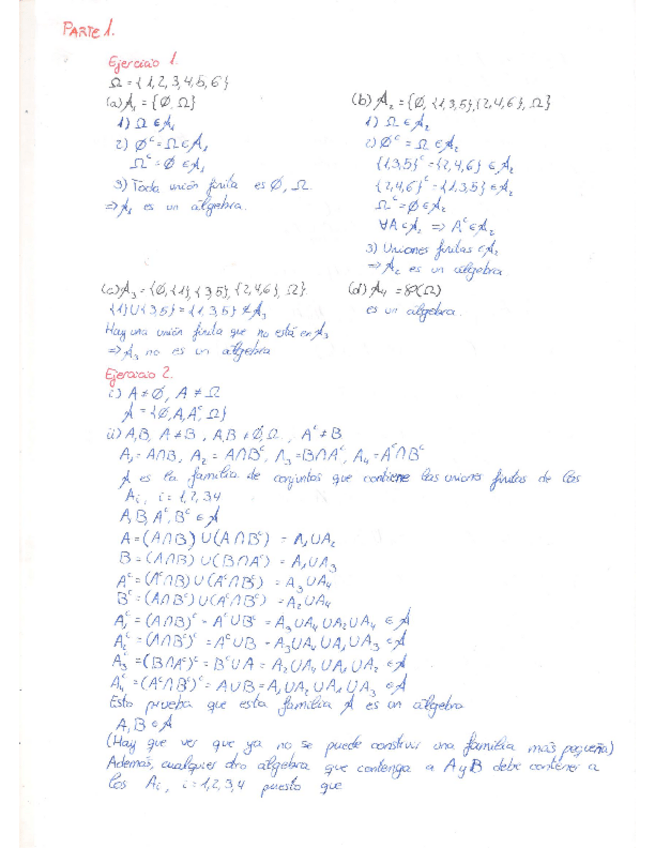 PARTE 1.
Ejercicio 1.
Ω = {1,2,3,4,5,6}
(a) A₁ = {Ø, Ω}
1) Ω ∈ A₁
2) Øᶜ = Ω ∈ A₁
Ωᶜ = Ø ∈ A₁
3) Toda unión finita es Ø, Ω.
⇒ A₁ es un álgebra.
(b) A₂ = {Ø, {1,3,5}, {2,4,6}, Ω}
1) Ω ∈ A₂
2) Øᶜ = Ω ∈ A₂
{1,3,5}ᶜ = {2,4,6} ∈ A₂
{2,4,6}ᶜ = {1,3,5} ∈ A₂
Ωᶜ = Ø ∈ A₂
∀A ∈ A₂ ⇒ Aᶜ ∈ A₂
3) Uniones finitas ∈ A₂
⇒ A₂ es un álgebra
(c) A₃ = {Ø, {1}, {3,5}, {2,4,6}, Ω}
{1} ∪ {3,5} = {1,3,5} ∉ A₃
Hay una unión finita que no está en A₃
⇒ A₃ no es un álgebra
(d) A₄ = ℘(Ω)
es un álgebra.
Ejercicio 2.
i) A ≠ Ø, A ≠ Ω
A = {Ø, A, Aᶜ, Ω}
ii) A,B, A ≠ B, A,B ≠ Ø,Ω, Aᶜ ≠ B
A₁ = A∩B, A₂ = A∩Bᶜ, A₃ = B∩Aᶜ, A₄ = Aᶜ∩Bᶜ
A es la familia de conjuntos que contiene las uniones finitas de los
Aᵢ, i = 1,2,3,4
A, B, Aᶜ, Bᶜ ∈ A
A = (A∩B) ∪ (A∩Bᶜ) = A₁∪A₂
B = (A∩B) ∪ (B∩Aᶜ) = A₁∪A₃
Aᶜ = (Aᶜ∩B) ∪ (Aᶜ∩Bᶜ) = A₃∪A₄
Bᶜ = (A∩Bᶜ) ∪ (Aᶜ∩Bᶜ) = A₂∪A₄
A₁ᶜ = (A∩B)ᶜ = Aᶜ∪Bᶜ = A₃∪A₄∪A₂∪A₄ ∈ A
A₂ᶜ = (A∩Bᶜ)ᶜ = Aᶜ∪B = A₃∪A₄∪A₁∪A₃ ∈ A
A₃ᶜ = (B∩Aᶜ)ᶜ = Bᶜ∪A = A₂∪A₄∪A₁∪A₂ ∈ A
A₄ᶜ = (Aᶜ∩Bᶜ)ᶜ = A∪B = A₁∪A₂∪A₁∪A₃ ∈ A
Esto prueba que esta familia A es un álgebra
A, B ∈ A
(Hay que ver que ya no se puede construir una familia más pequeña)
Además, cualquier otro álgebra que contenga a A y B debe contener a
los Aᵢ, i = 1,2,3,4 puesto que